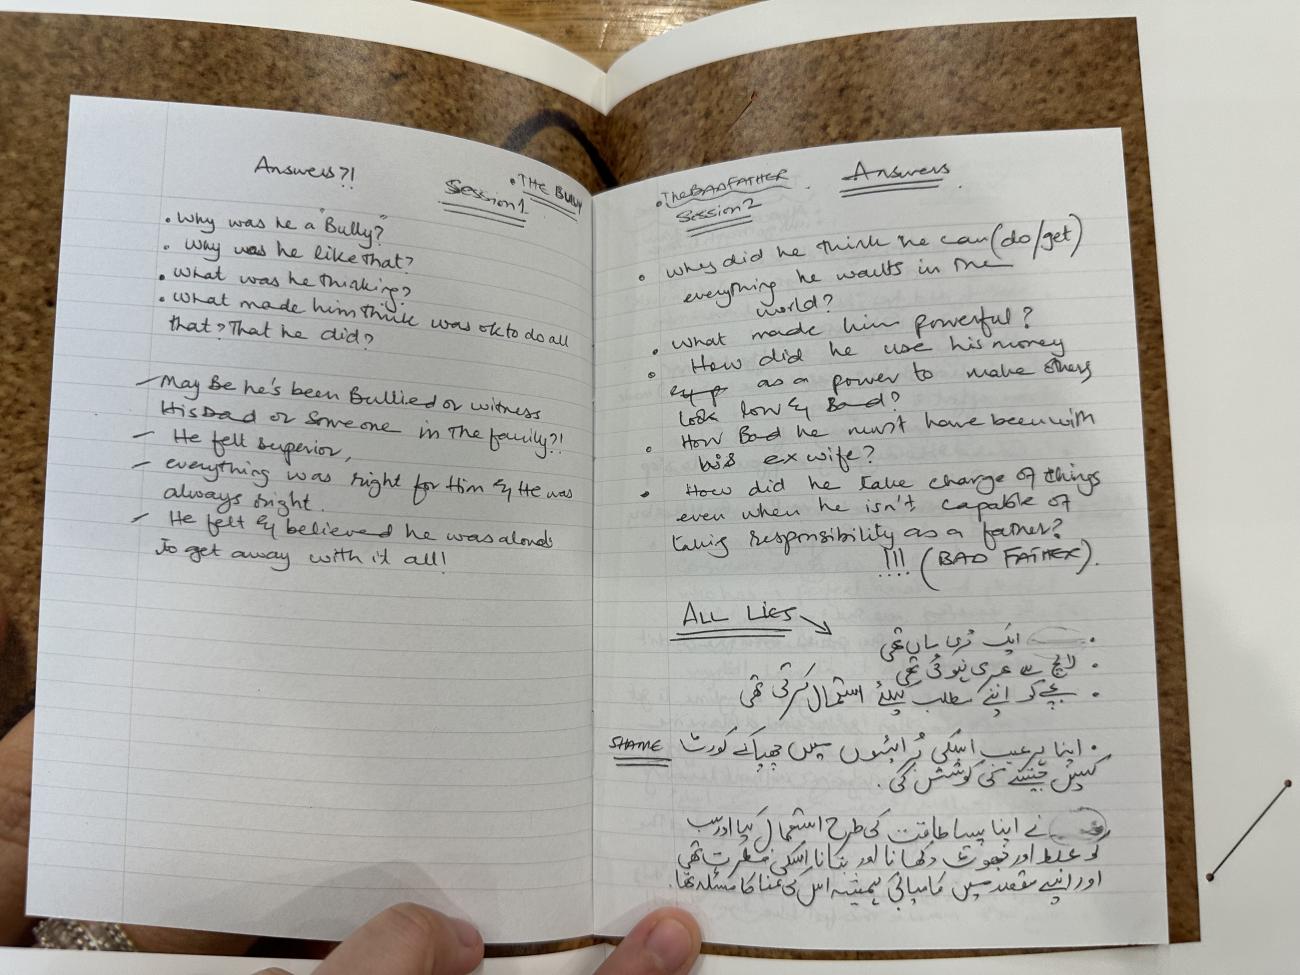 Answers?!
• THE BULLY
Session 1
• Why was he a "Bully"?
• Why was he like that?
• What was he thinking?
• What made him think was ok to do all
that? That he did?
– May Be he's been Bullied or witness
His Dad or Someone in The family?!
– He felt superior,
– everything was right for Him & He was
always right.
– He felt & believed he was
To get away with it all!
• The BAD FATHER
Session 2
Answers
• Why did he think he can (do/get)
everything he wants in the
world?
• What made him powerful?
• How did he use his money
as a power to make others
look low & Bad?
• How Bad he must have been with
his ex wife?
• How did he take charge of things
even when he isn't capable of
taking responsibility as a father?
!!! (BAD FATHER).
ALL LIES
• ایک بُری ماں تھی
• لالچ سے بھری ہوئی تھی
• بچے کو اپنے مطلب کیلئے استعمال کرتی تھی
SHAME
• اپنا ہر عیب اسکی بُرائیوں میں چھپا کے کورٹ
کیس جیتنے کی کوشش کی.
نے اپنا پیسا طاقت کی طرح استعمال کیا اور سب
کو غلط اور جھوٹ دکھانا اور بتانا اسکی فطرت تھی
اور اپنے مقصد میں کامیابی ہمیشہ اس کی انا کا مسئلہ تھا.